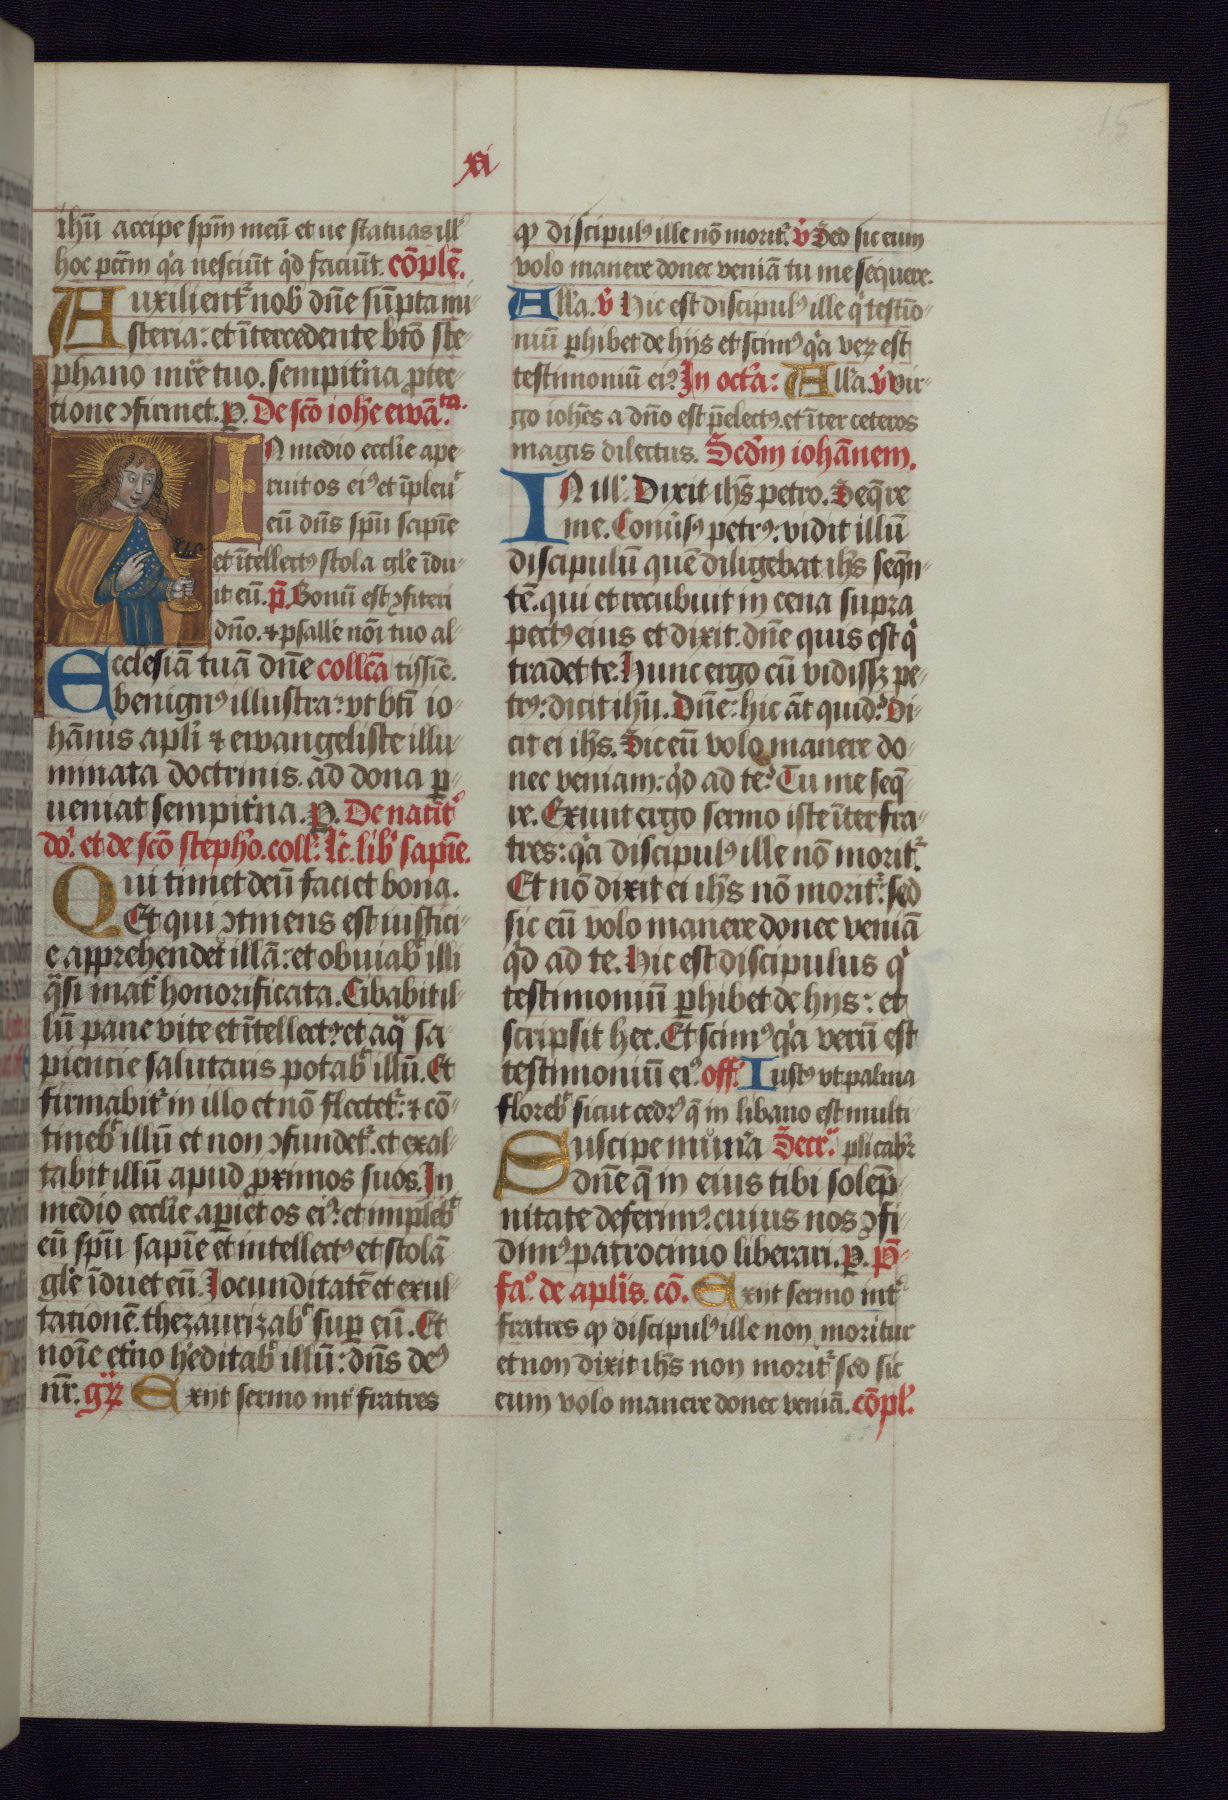 15
xi
ihū accipe spm̄ meū et ne statuas ill'
hoc pctm̄ qꝛa nesciūt qd̓ faciūt. cōplē.
Auxilient᷑ nob̓ dn̄e sūpta mi-
steria: et ītercedente btō ste-
phano mr̄e tuo. sempit̓na ꝓtec-
tione ꝯfirmet. P. De scō ioh̓e ewā.ta.
IN medio eccl̓ie ape-
ruit os eiꝰ et īpleu᷑
eū dn̄s spū sapīe
et ītellectꝰ stola gl̓e īdu-
it eū. p̄. Bonū est ꝯfiteri
dn̄o. ⁊ psalle̓ nōi tuo al-
Ecclesiā tuā dn̄e collcā tissīe.
benignꝰ illustra: vt btī io-
hānis apl̓i ⁊ ewangeliste illu-
minata doctrinis. ad dona p̱-
ueniat sempit̓na. P. De natīt᷑
do̓. et de scō steph̓o. coll᷑. lc̄. lib̓ sapīe.
Qui timet deū faciet bona.
Et qui ꝯtinens est iustici-
e apprehendet illā: et obuiab᷑ illi
q̄si mat᷑ honorificata. Cibabit il-
lū pane vite et ītellectꝰ: et aq̄ sa-
piencie salutaris potab᷑ illū. Et
firmabit᷑ in illo et nō flectet᷑: ⁊ cō-
tineb᷑ illū et non ꝯfundet᷑. et exal-
tabit illū apud ꝓximos suos. In
medio eccl̓ie aperiet os eiꝰ: et impleb᷑
eū spū sapīe et intellectꝰ et stolā
gl̓e īduet eū. Iocunditatē et exul-
tationē. thezaurizab᷑ sup̱ eū. Et
noīe et̓no h̓editab᷑ illū: dn̄s deꝰ
nr̄. gr̄ꝝ Exijt sermo int̓ fratres
ꝙ discipulꝰ ille nō morit᷑. v̄ Sed sic eum
volo manere donec veniā tu me sequere.
All̓a. v̄ Hic est discipulꝰ ille q̓ testīo-
niū p̱hibet de hijs et scimꝰ qꝛa veꝝ est
testimoniū eiꝰ. In oct̓a: All̓a. v̄ vir-
go ioh̄es a dn̄o est p̄electꝰ. et īter ceteros
magis dilectus. Scdm̄ iohānem.
IN ill᷑. Dixit ih̄s petro. Seq̄re
me. Conūsꝰ petrꝰ: vidit illū
discipulū quē diligebat ih̄s seqn̄-
tē. qui et recubuit in cena supra
pectꝰ eius et dixit. dn̄e quis est q̓
tradet te. Hunc ergo cū vidissꝫ pe-
trꝰ: dicit ihū. Dn̄e: hic āt quid? Di-
cit ei ih̄s. Sic eū volo manere do-
nec veniam: qd̓ ad te? Tu me seq̄-
re. Exiuit ergo sermo iste īter fra-
tres: qꝛa discipulꝰ ille nō morit᷑.
Et nō dixit ei ih̄s nō morit᷑: sed
sic eū volo manere donec veniā
qd̓ ad te. Hic est discipulus q̓
testimoniū p̱hibet de hijs: et
scripsit hec. Et scimꝰ qꝛa verū est
testimoniū eiꝰ. off̄. Iustꝰ vt palma
floreb᷑ sicut cedrꝰ q̄ in libano est multi-
Suscipe mun̓a Secr̄. plicabr̄
dn̄e q̄ in eius tibi solēp-
nitate deferimꝰ. cuius nos ꝯfi-
dimꝰ patrocinio liberari. P. p̄-
fa͡o. de apl̓is. cō. Exijt sermo int᷑
fratres ꝙ discipulꝰ ille non moritur
et non dixit ih̄s non morit᷑ sed sic
eum volo manere donec veniā. cōpl᷑.